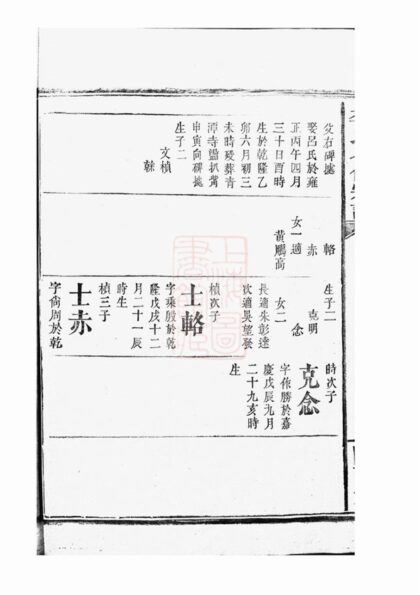 爻右碑誌
娶呂氏於雍
正丙午四月
三十日酉時
生於乾隆乙
卯六月初三
未時歿葬青
潭寺
申寅向碑誌
生子二
文楨
榦
輅
赤
女一適
黃鵬高
生子二
克明
念
女二
長適朱彭達
次適
士輅
楨次子
字乘殷於乾
隆戊戌十二
月二十一辰
時生
士赤
楨三子
字尙周於乾
時次子
克念
字作勝於嘉
慶戊辰九月
二十九亥時
生